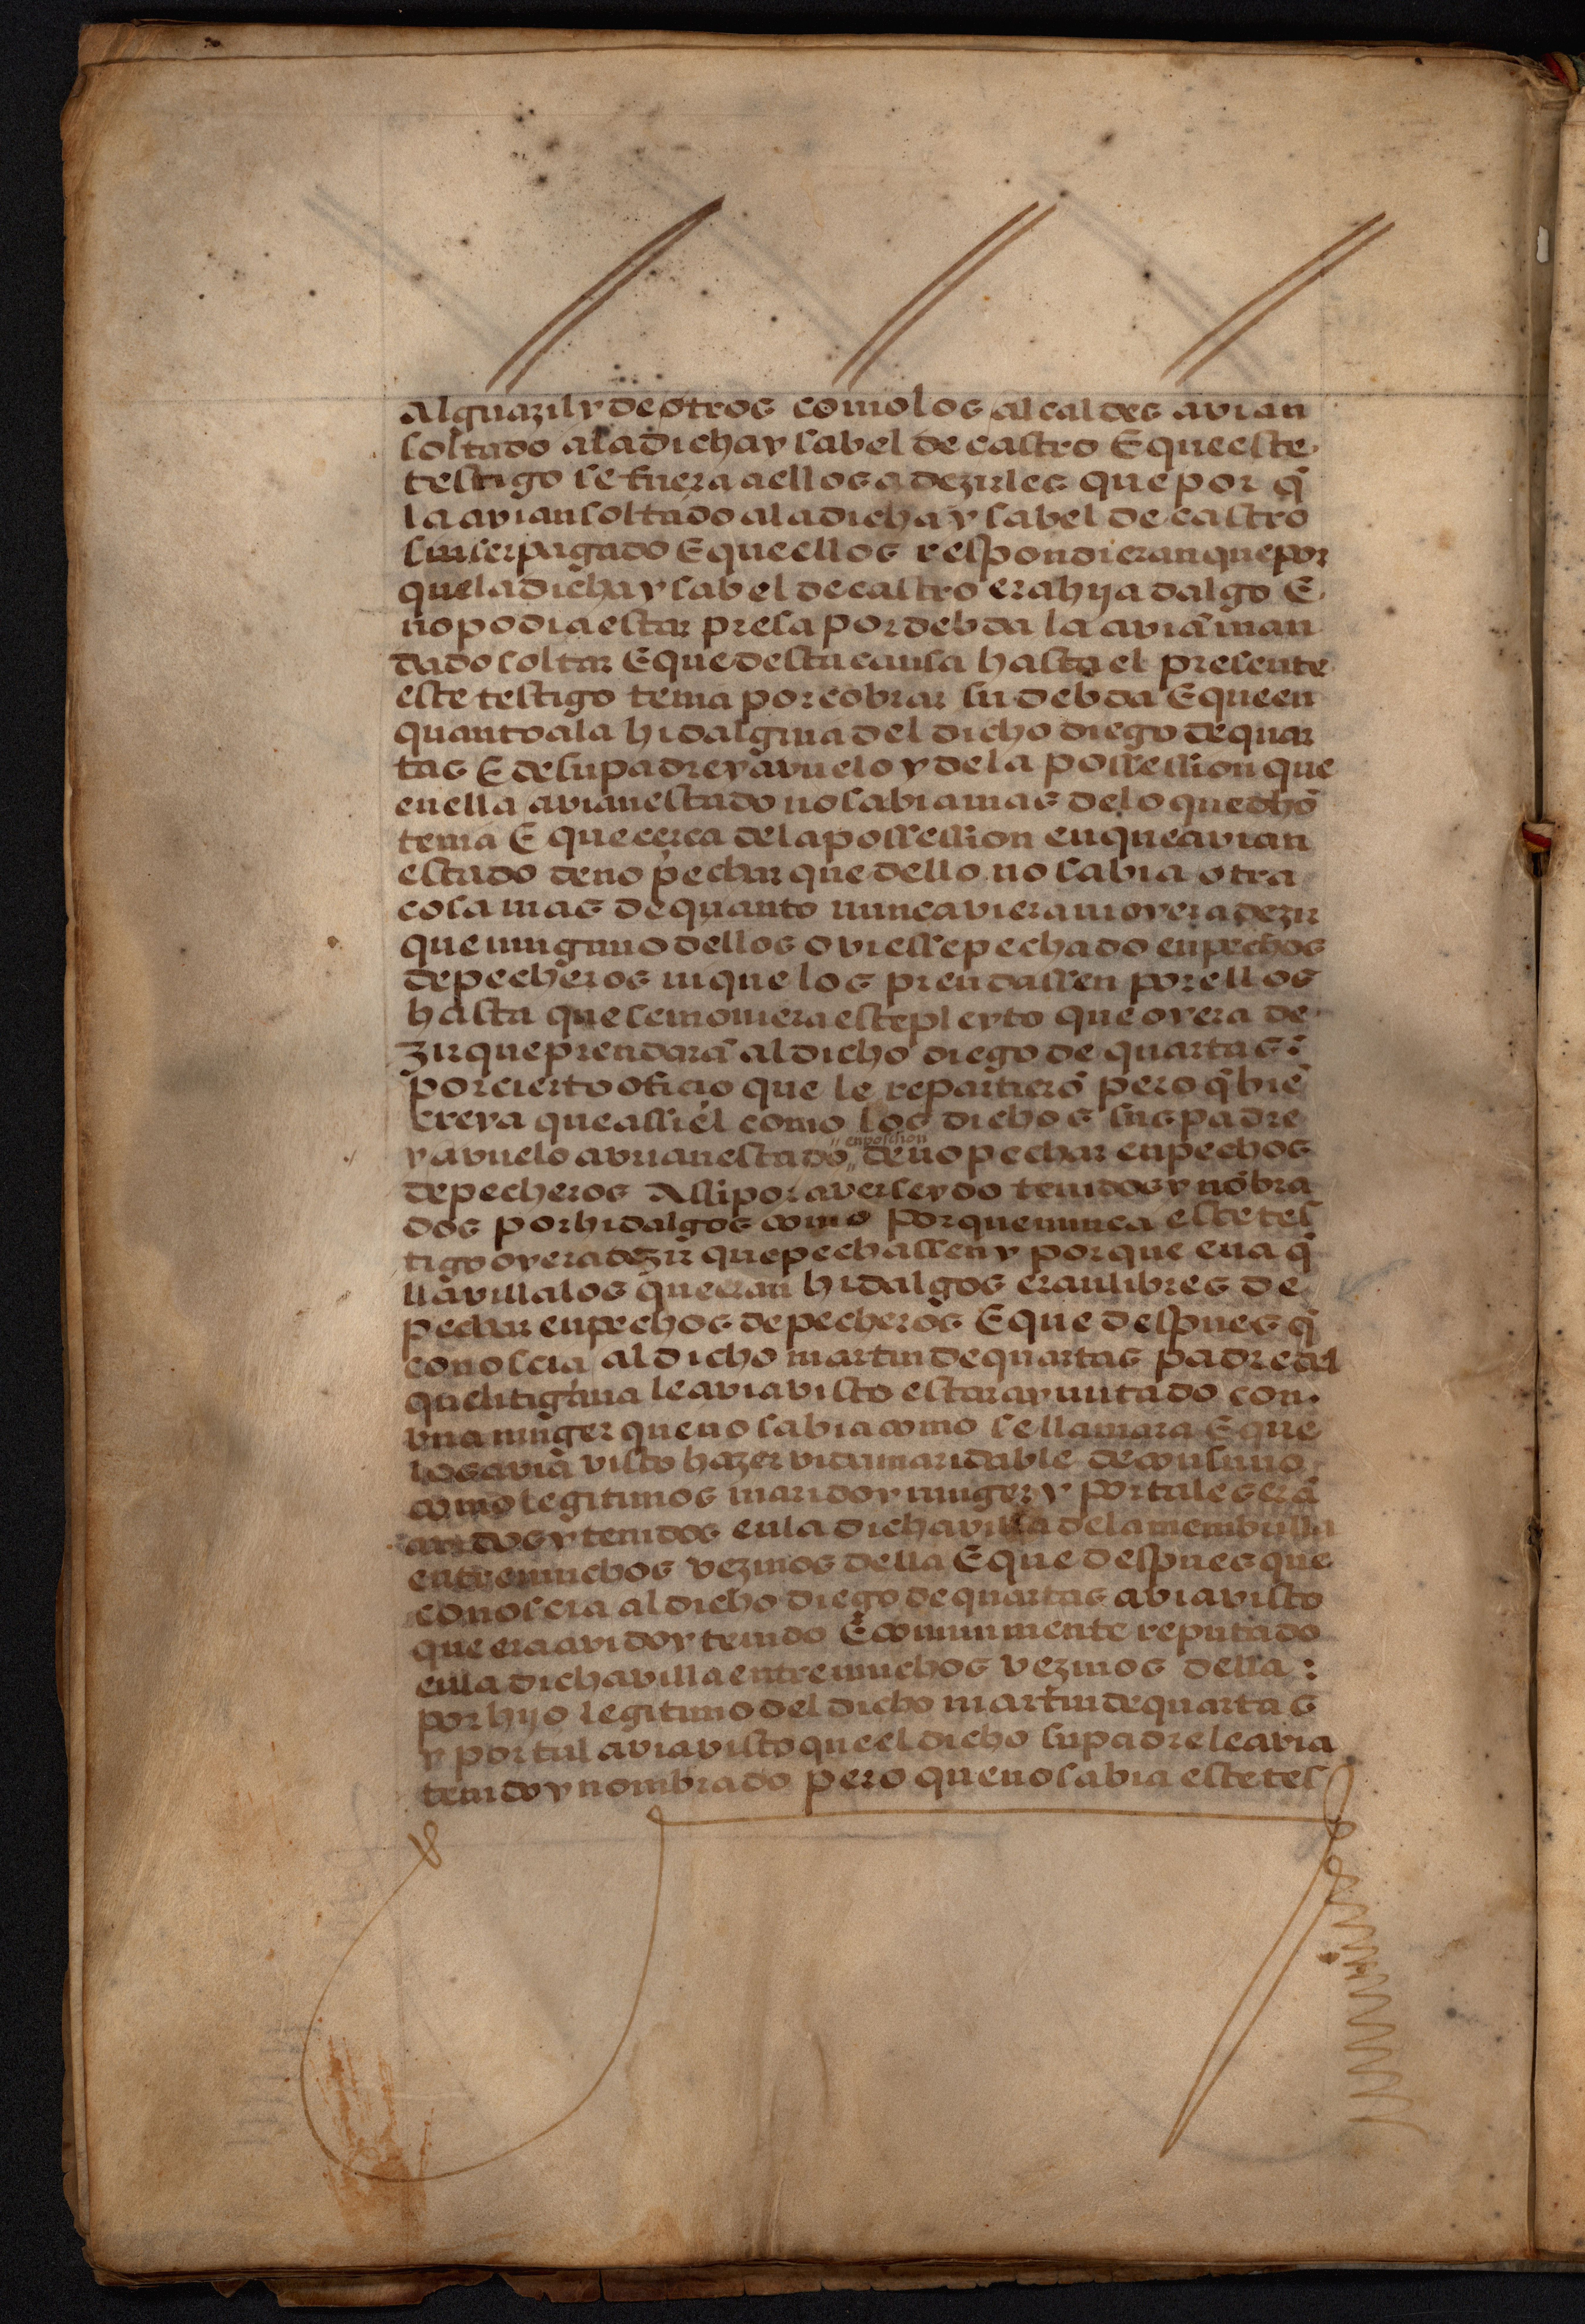 alguazil y de otros como los alcaldes avian
soltado a la dicha ysabel de castro E que este
testigo se fuera a ellos a dezirles que por q̃
la avian soltado a la dicha ysabel de castro
sin ser pagado E que ellos respondieran que por
que la dicha ysabel de castro era hija dalgo E
no podia estar presa por debda la aviã man
dado soltar E que desta causa hasta el presente
este testigo tenia por cobrar su debda E que en
quanto a la hidalguia del dicho diego de quar
tas E de su padre y avuelo y de la possession que
en ella avian estado no sabia mas de lo que dhõ
tenia E que cerca de la possession en que avian
estado de no pechar que dello no sabia otra
cosa mas de quanto nunca viera ni oyera dezir
que ninguno dellos oviesse pechado en pechos
de pecheros ni que los prendassen por ellos
hasta que se moviera este pleyto que oyera de
zir que prendarã al dicho diego de quartas:
por cierto oficio que le repartierõ pero q̃ biẽ
creya que assi el como los dichos sus padre
y avuelo avian estado " en possion " de no pechar en pechos
de pecheros assi por aver seydo tenidos y nõbra
dos por hidalgos como porque nunca este tes
tigo oyera dezir que pechassen y porque en aq̃
lla villa los que eran hidalgos eran libres de
pechar en pechos de pecheros E que despues q̃
conoscia al dicho martin de quartas padre del
que litigava le avia visto estar ayuntado con
vna muger que no sabia como se llamara E que
los aviã visto hazer vida maridable de consuno
como legitimos marido y muger y por tales erã
avidos y tenidos en la dicha villa de la membrilla
entre muchos vezinos della E que despues que
conoscia al dicho diego de quartas avia visto
que era avido y tenido E comunmente reputado
en la dicha villa entre muchos vezinos della:
por hijo legitimo del dicho martin de quartas
y por tal avia visto que el dicho su padre le avia
tenido y nombrado pero que no sabia este tes